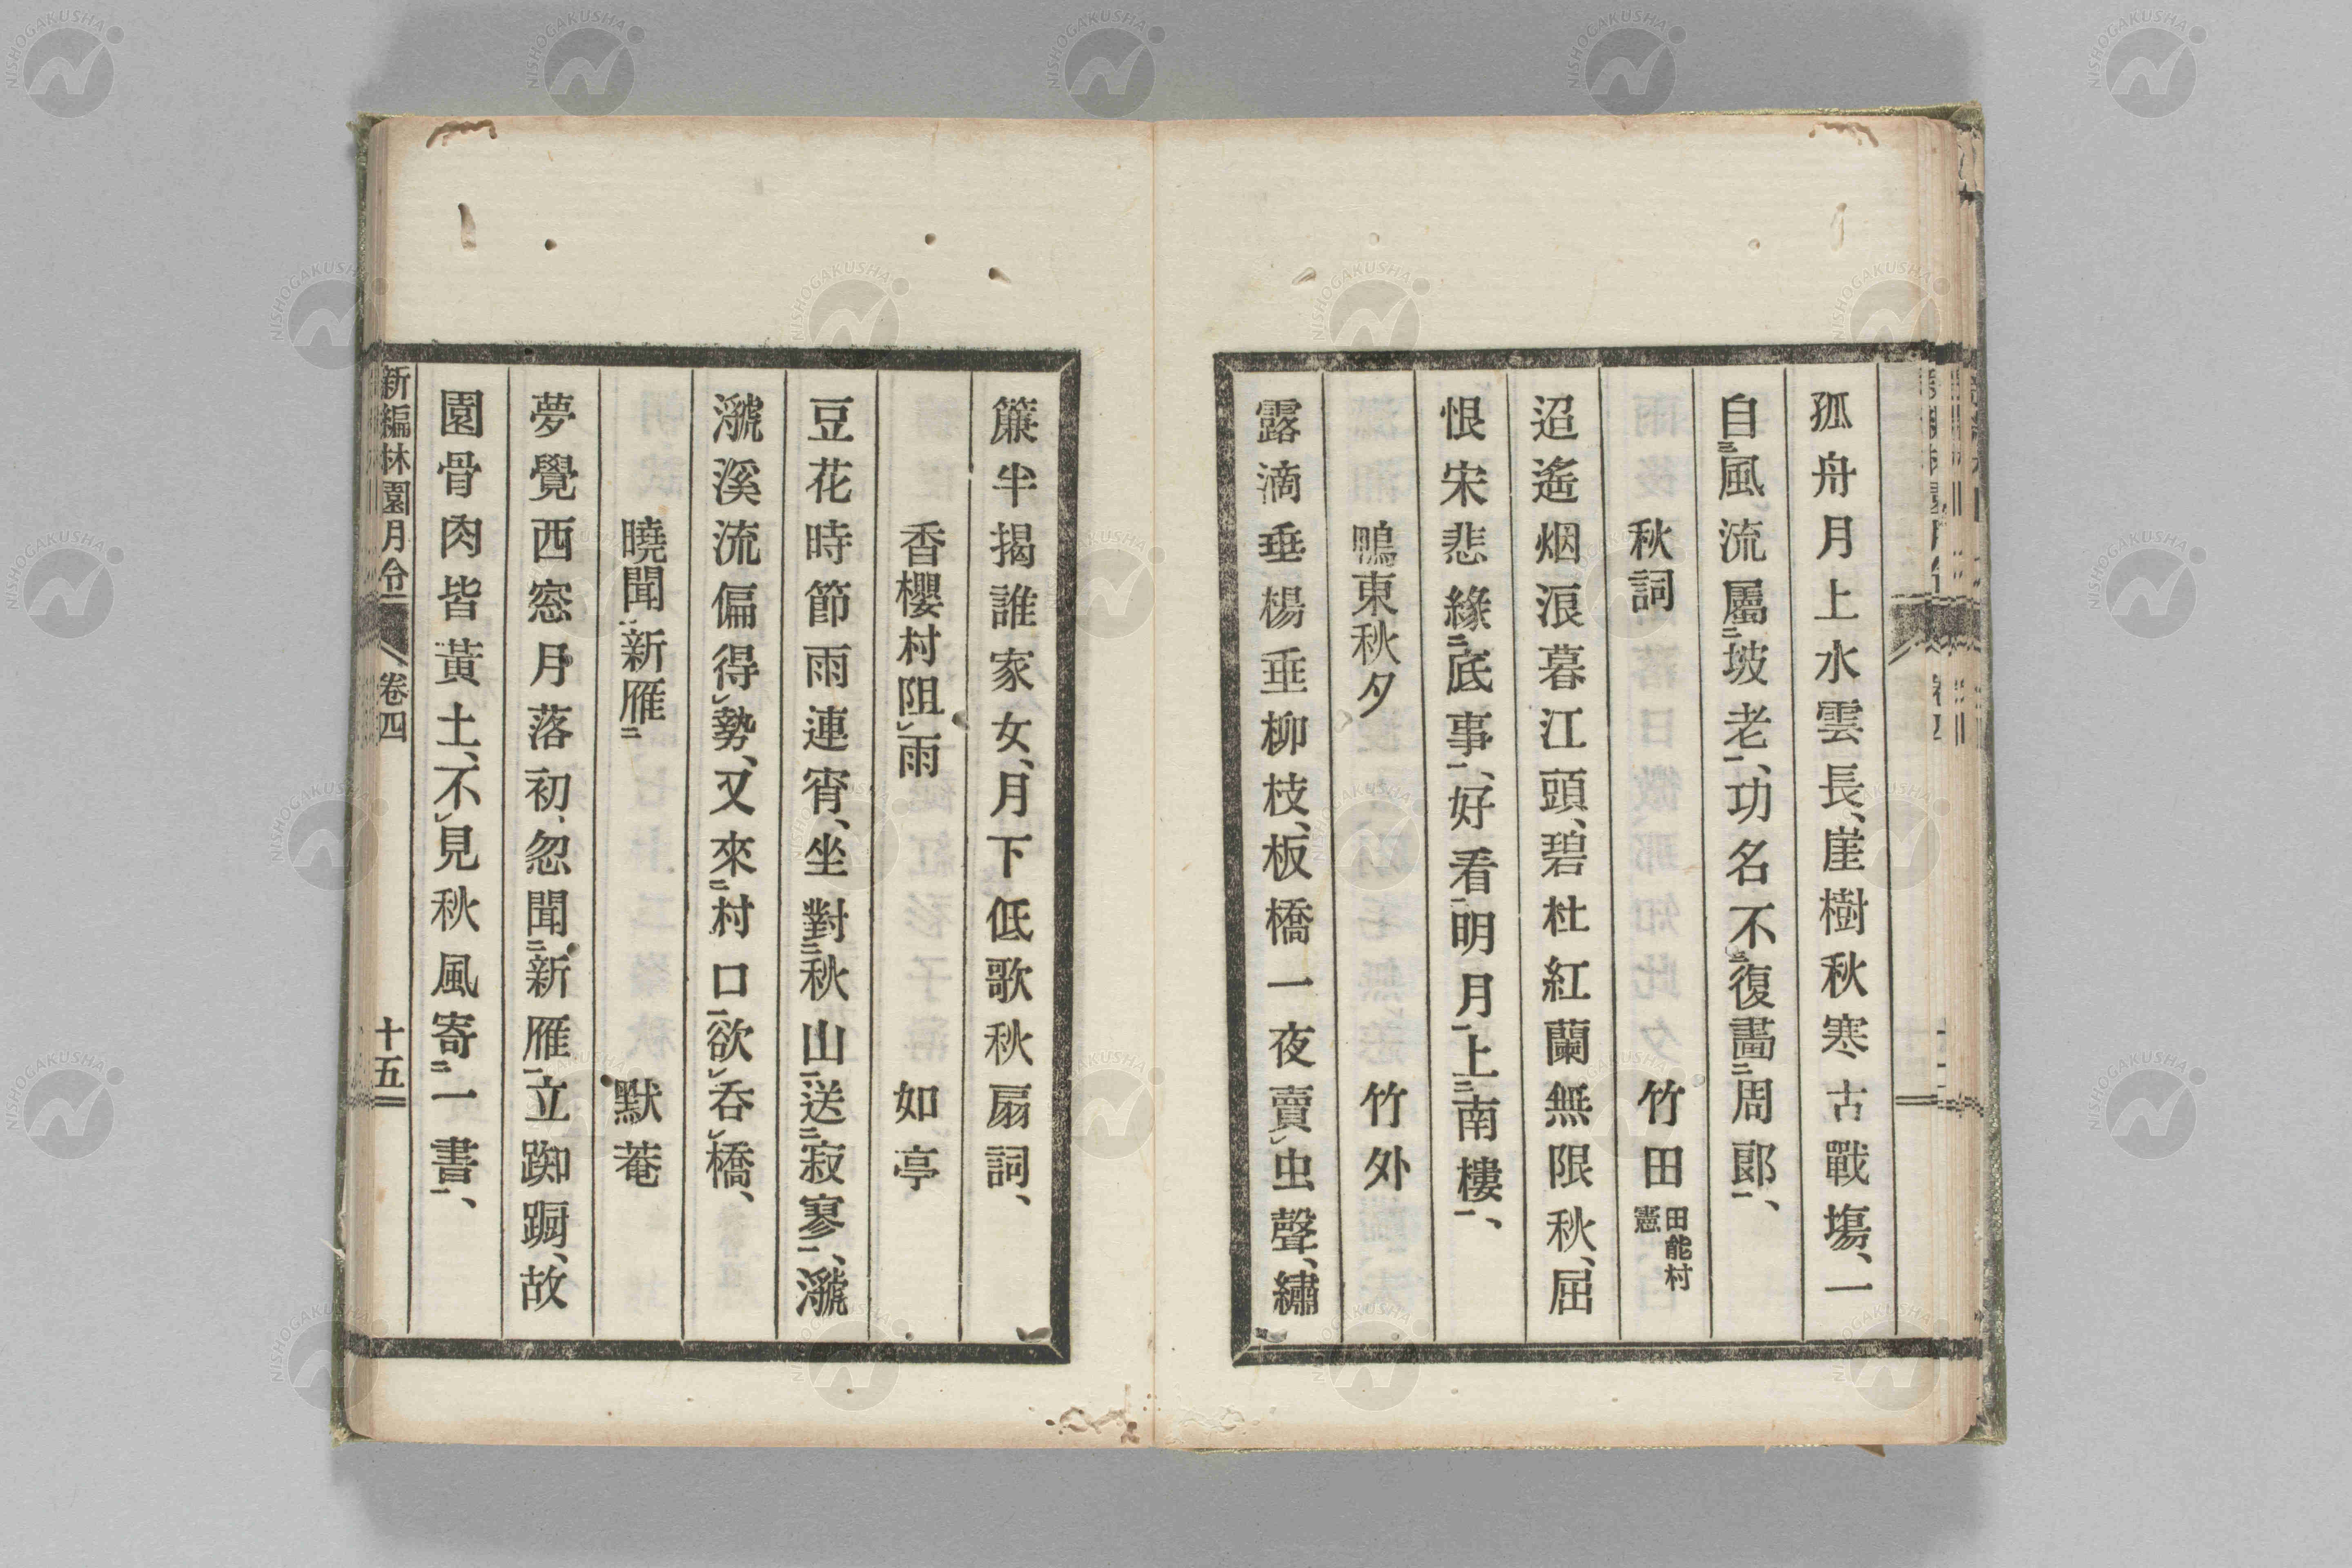 孤舟月上水雲長、崖樹秋寒古戰塲、一
自㆔風流屬㆓坡老㆒、功名不㆔復畵㆓周郎㆒、
秋詞 竹田 田能村憲
迢遙烟浪暮江頭、碧杜紅蘭無限秋、屈
恨宋悲緣㆓底事㆒、好看㆘明月㆒上㆓南樓㆒、
鴨東秋夕 竹外
露滴垂楊垂柳枝、板橋一夜賣㆑虫聲、繡
簾半揭誰家女、月下低歌秋扇詞、
香櫻村阻㆑雨 如亭
豆花時節雨連宵、坐對㆓秋山㆒送㆓寂寥㆒、㶁
㶁溪流偏得㆑勢、又來㆓村口㆒欲㆑呑㆑橋、
曉聞㆓新雁㆒ 默菴
夢覺西窓月落初、忽聞㆓新雁㆒立踟蹰、故
園骨肉皆黃土、不㆑見秋風寄㆓一書㆒、
新編林園月令 卷四 十五